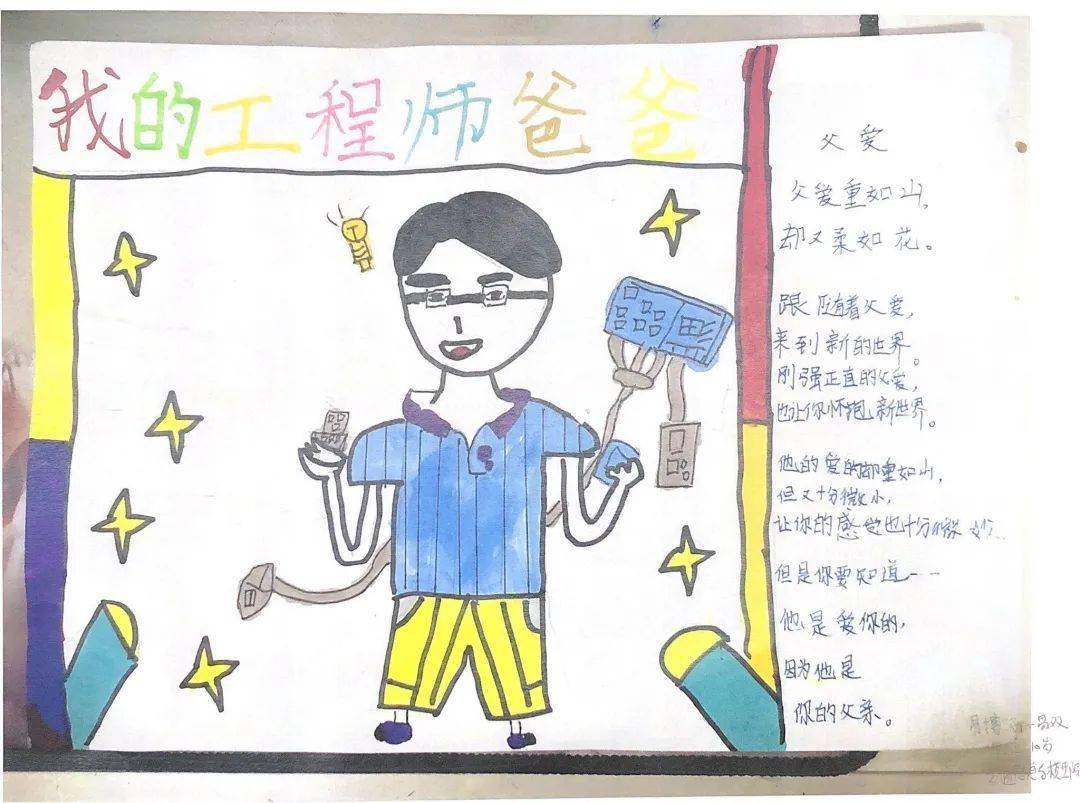 我的工程师爸爸
父爱
父爱重如山，
却又柔如花。
跟随着父爱，
来到新的世界。
刚强正直的父爱，
也让你怀抱新世界。
他的爱的却重如山，
但又十分微小，
让你的感觉也十分微妙…
但是你要知道--
他是爱你的，
因为他是
你的父亲。
10岁